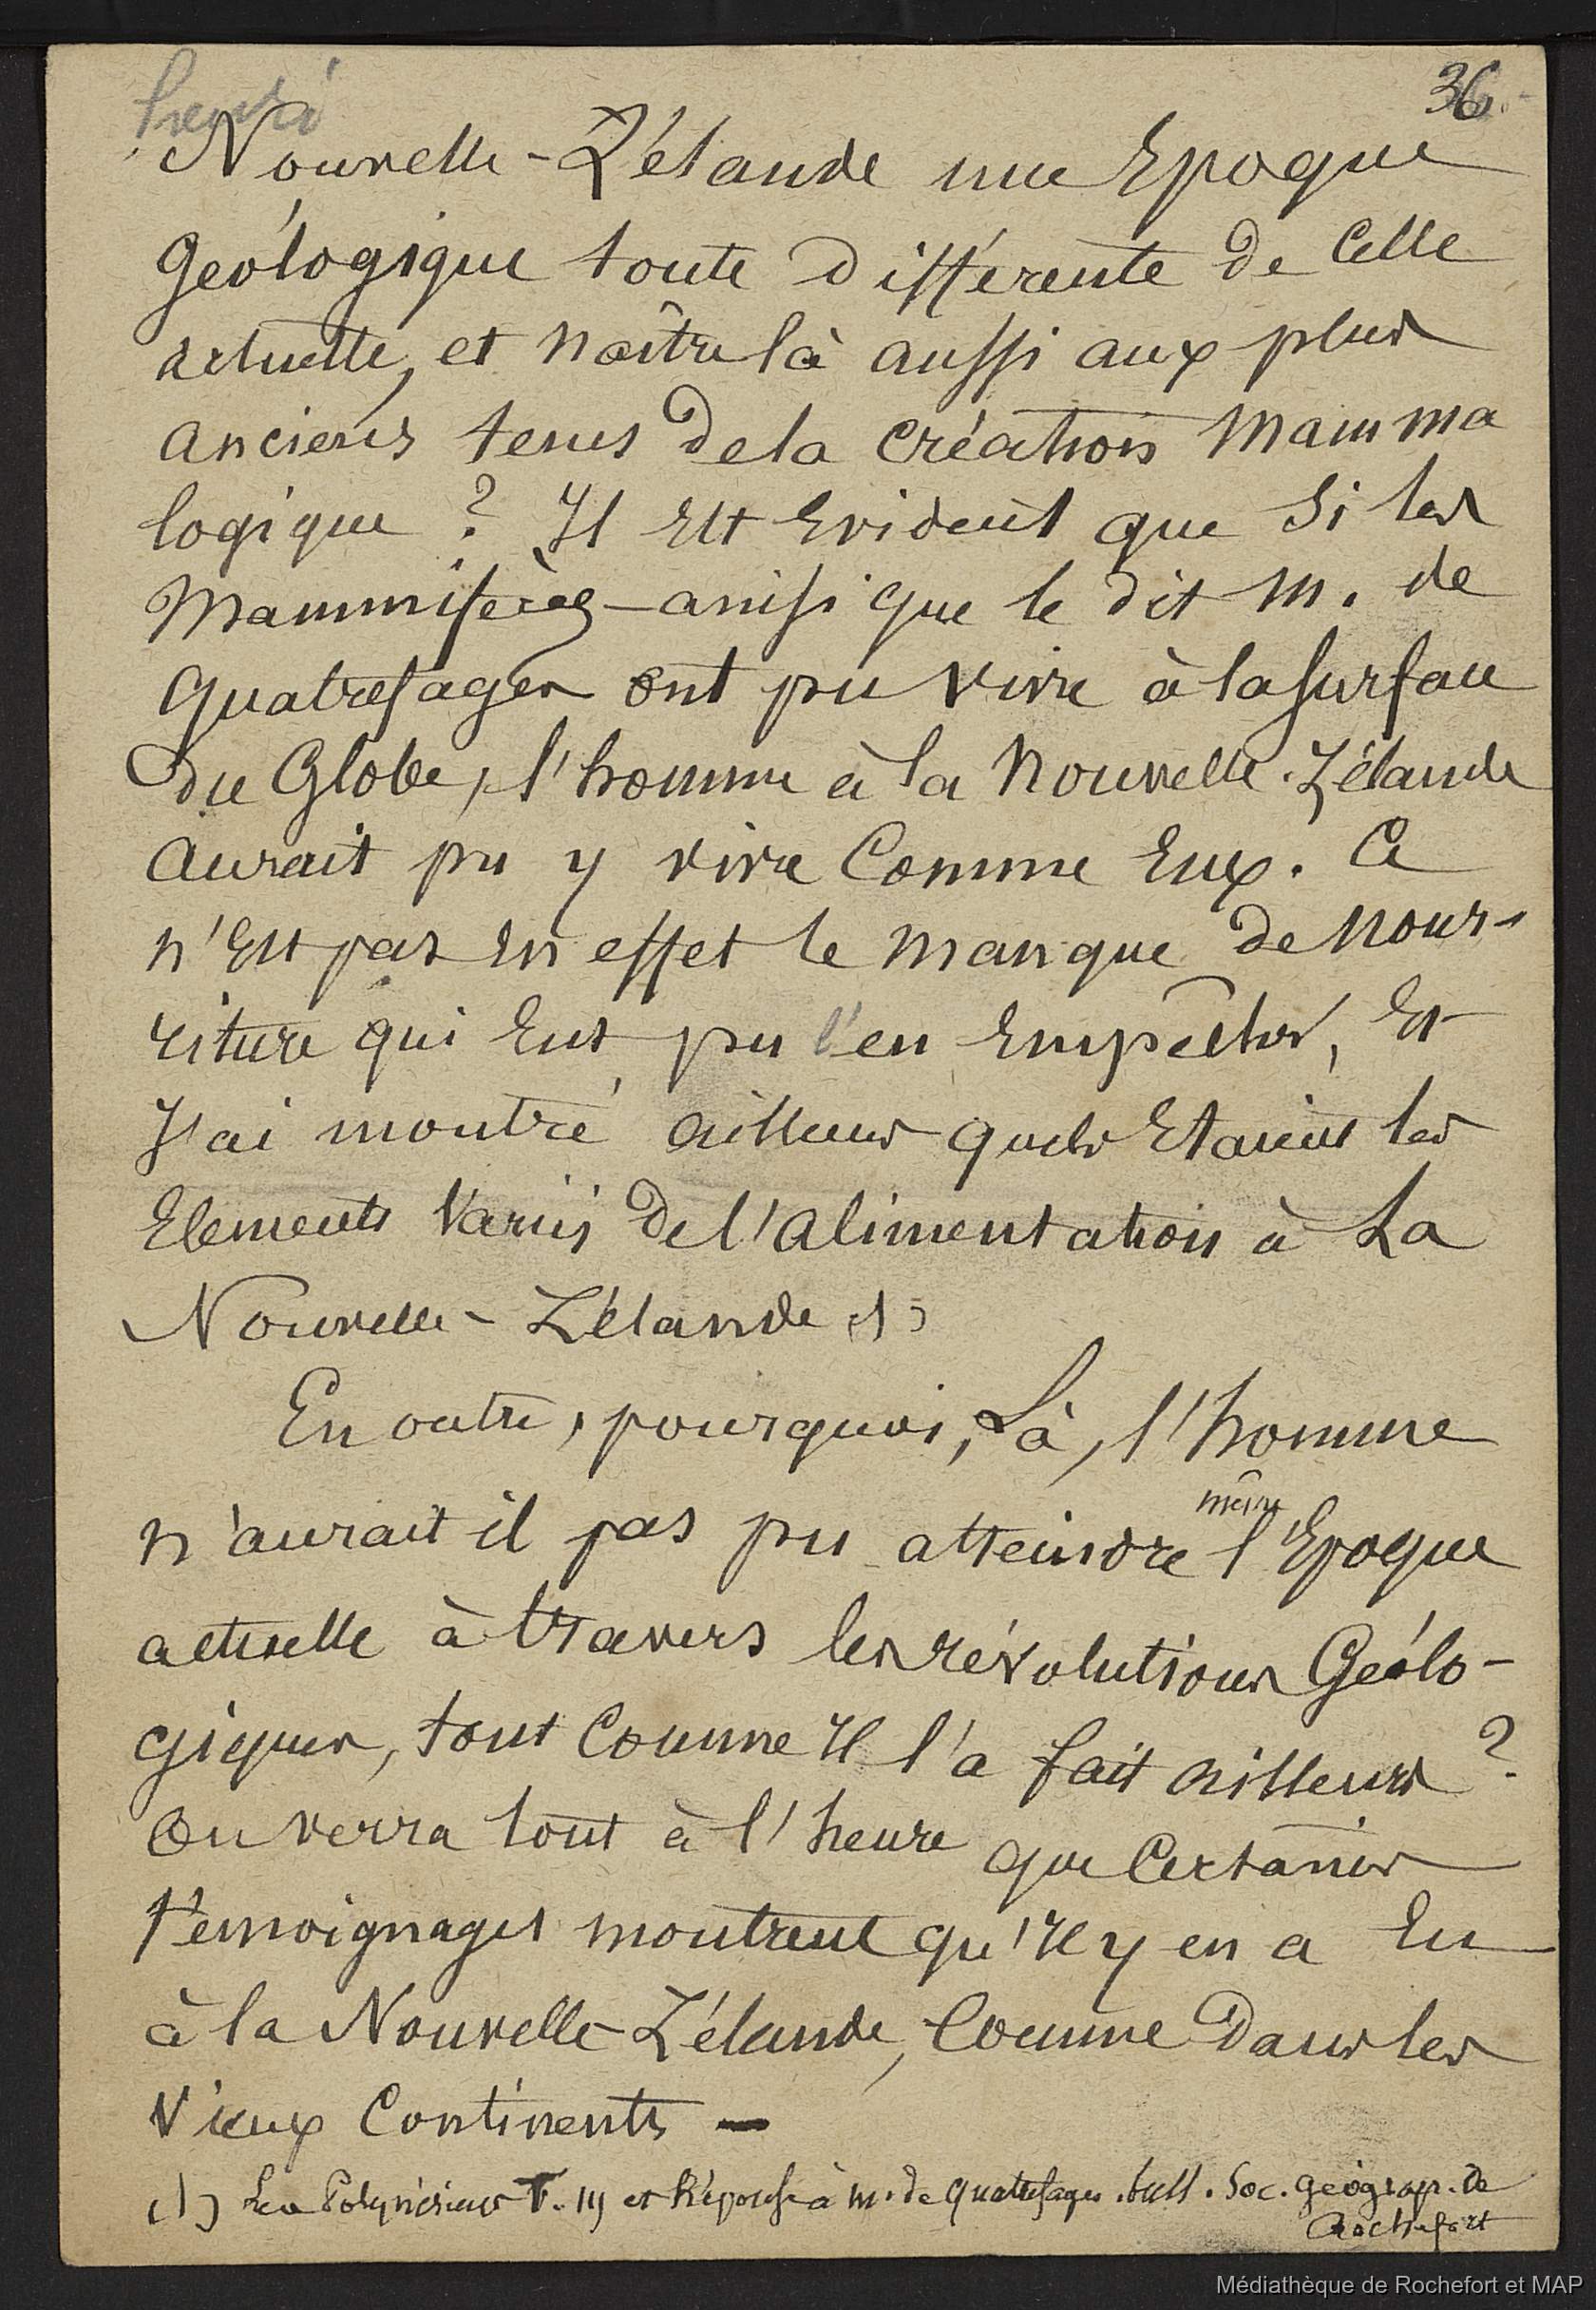 36.
Nouvelle-Zélande une Epoque
Géologique toute différente de celle
actuelle, et naître là aussi aux plus
anciens tems de la création mamma
logique ? Il Est Evident que si les
Mammifères - ainsi que le dit M. de
Quatrefages ont pu vivre à la surface
du Globe, l'homme à la Nouvelle-Zélande
aurait pu y vivre comme Eux. Ce
n'Est pas en effet le manque de nour-
riture qui Eut pu l'en Empêcher, Et
J'ai montré ailleurs quels Etaient les
Elements variés de l'alimentation à La
Nouvelle-Zélande (1)
En outre, pourquoi, Là, l'homme
même
n'aurait il pas pu atteindre l'Epoque
actuelle à travers les révolutions Géolo-
giques, tout comme Il l'a fait ailleurs ?
On verra tout à l'heure que certains
témoignages montrent qu'Il y en a Eu
à la Nouvelle-Zélande, comme dans les
vieux continents -
(1) Les Polynésiens T. III et Réponse à M. de Quatrefages. bull. Soc. géograp. de
Rochefort
Médiathèque de Rochefort et MAP